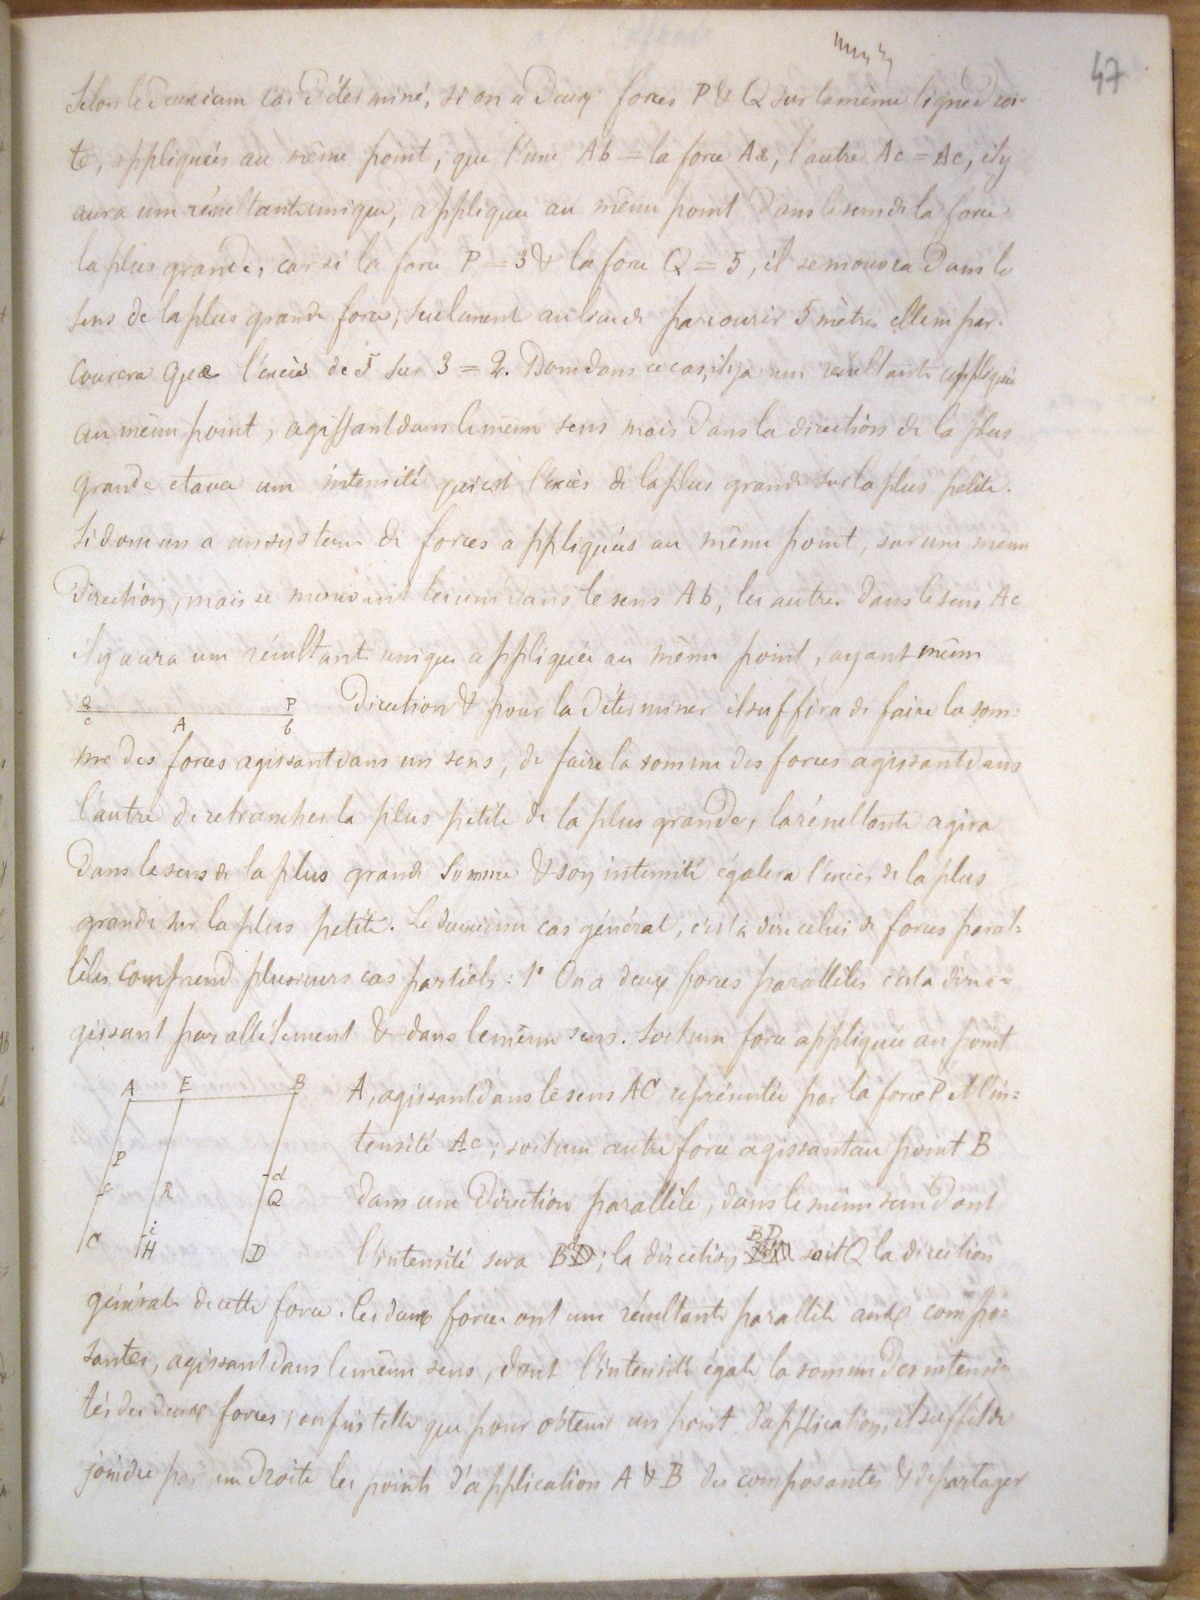 47
Selon le deuxiem cas déterminé, si on a deux forces P & Q sur la même ligne droi-
te, appliquées au même point, que l'une Ab = la force A2, l'autre Ac = Ac, il y
aura une résultante unique, appliquée au même point dans le sens de la force
la plus grande, car si la force P = 3 & la force Q = 5, il se mouvra dans le
sens de la plus grande force, seulement au lieu de parcourir 5 mètres elle n'en par-
courera que l'excès de 5 sur 3 = 2. Donc dans ce cas, il y a une résultante appliquée
au même point, agissant dans le même sens mais dans la direction de la plus
grande et avec une intensité qui est l'excès de la plus grande sur la plus petite.
Si donc on a un système de forces appliquées au même point, sur une même
direction, mais se mouvant les unes dans le sens Ab, les autres dans le sens Ac
il y aura une résultante unique appliquée au même point, ayant même
c A P b
direction & pour la déterminer il suffira de faire la som=
me des forces agissant dans un sens, de faire la somme des forces agissant dans
l'autre de retrancher la plus petite de la plus grande, la résultante agira
dans le sens de la plus grande somme & son intensité égalera l'excès de la plus
grande sur la plus petite. Le deuxième cas général, c'est à dire celui de forces paral=
lèles comprend plusieurs cas partiels : 1° On a deux forces parallèles c'est à dire a=
gissant parallèlement & dans le même sens. Soit une force appliquée au point
A E B
A, agissant dans le sens AC représentée par la force P et l'in=
tensité Ac; soit une autre force agissant au point B
P c R d Q
dans une direction parallèle, dans le même sens dont
C i H D
l'intensité sera BD; la direction BD soit Q la direction
générale de cette force. Ces deux forces ont une résultante parallèle aux compo=
santes, agissant dans le même sens, dont l'intensité égale la somme des intensi=
tés des deux forces, enfin telle que pour obtenir un point d'application, il suffit de
joindre par une droite les points d'application A & B des composantes & de partager